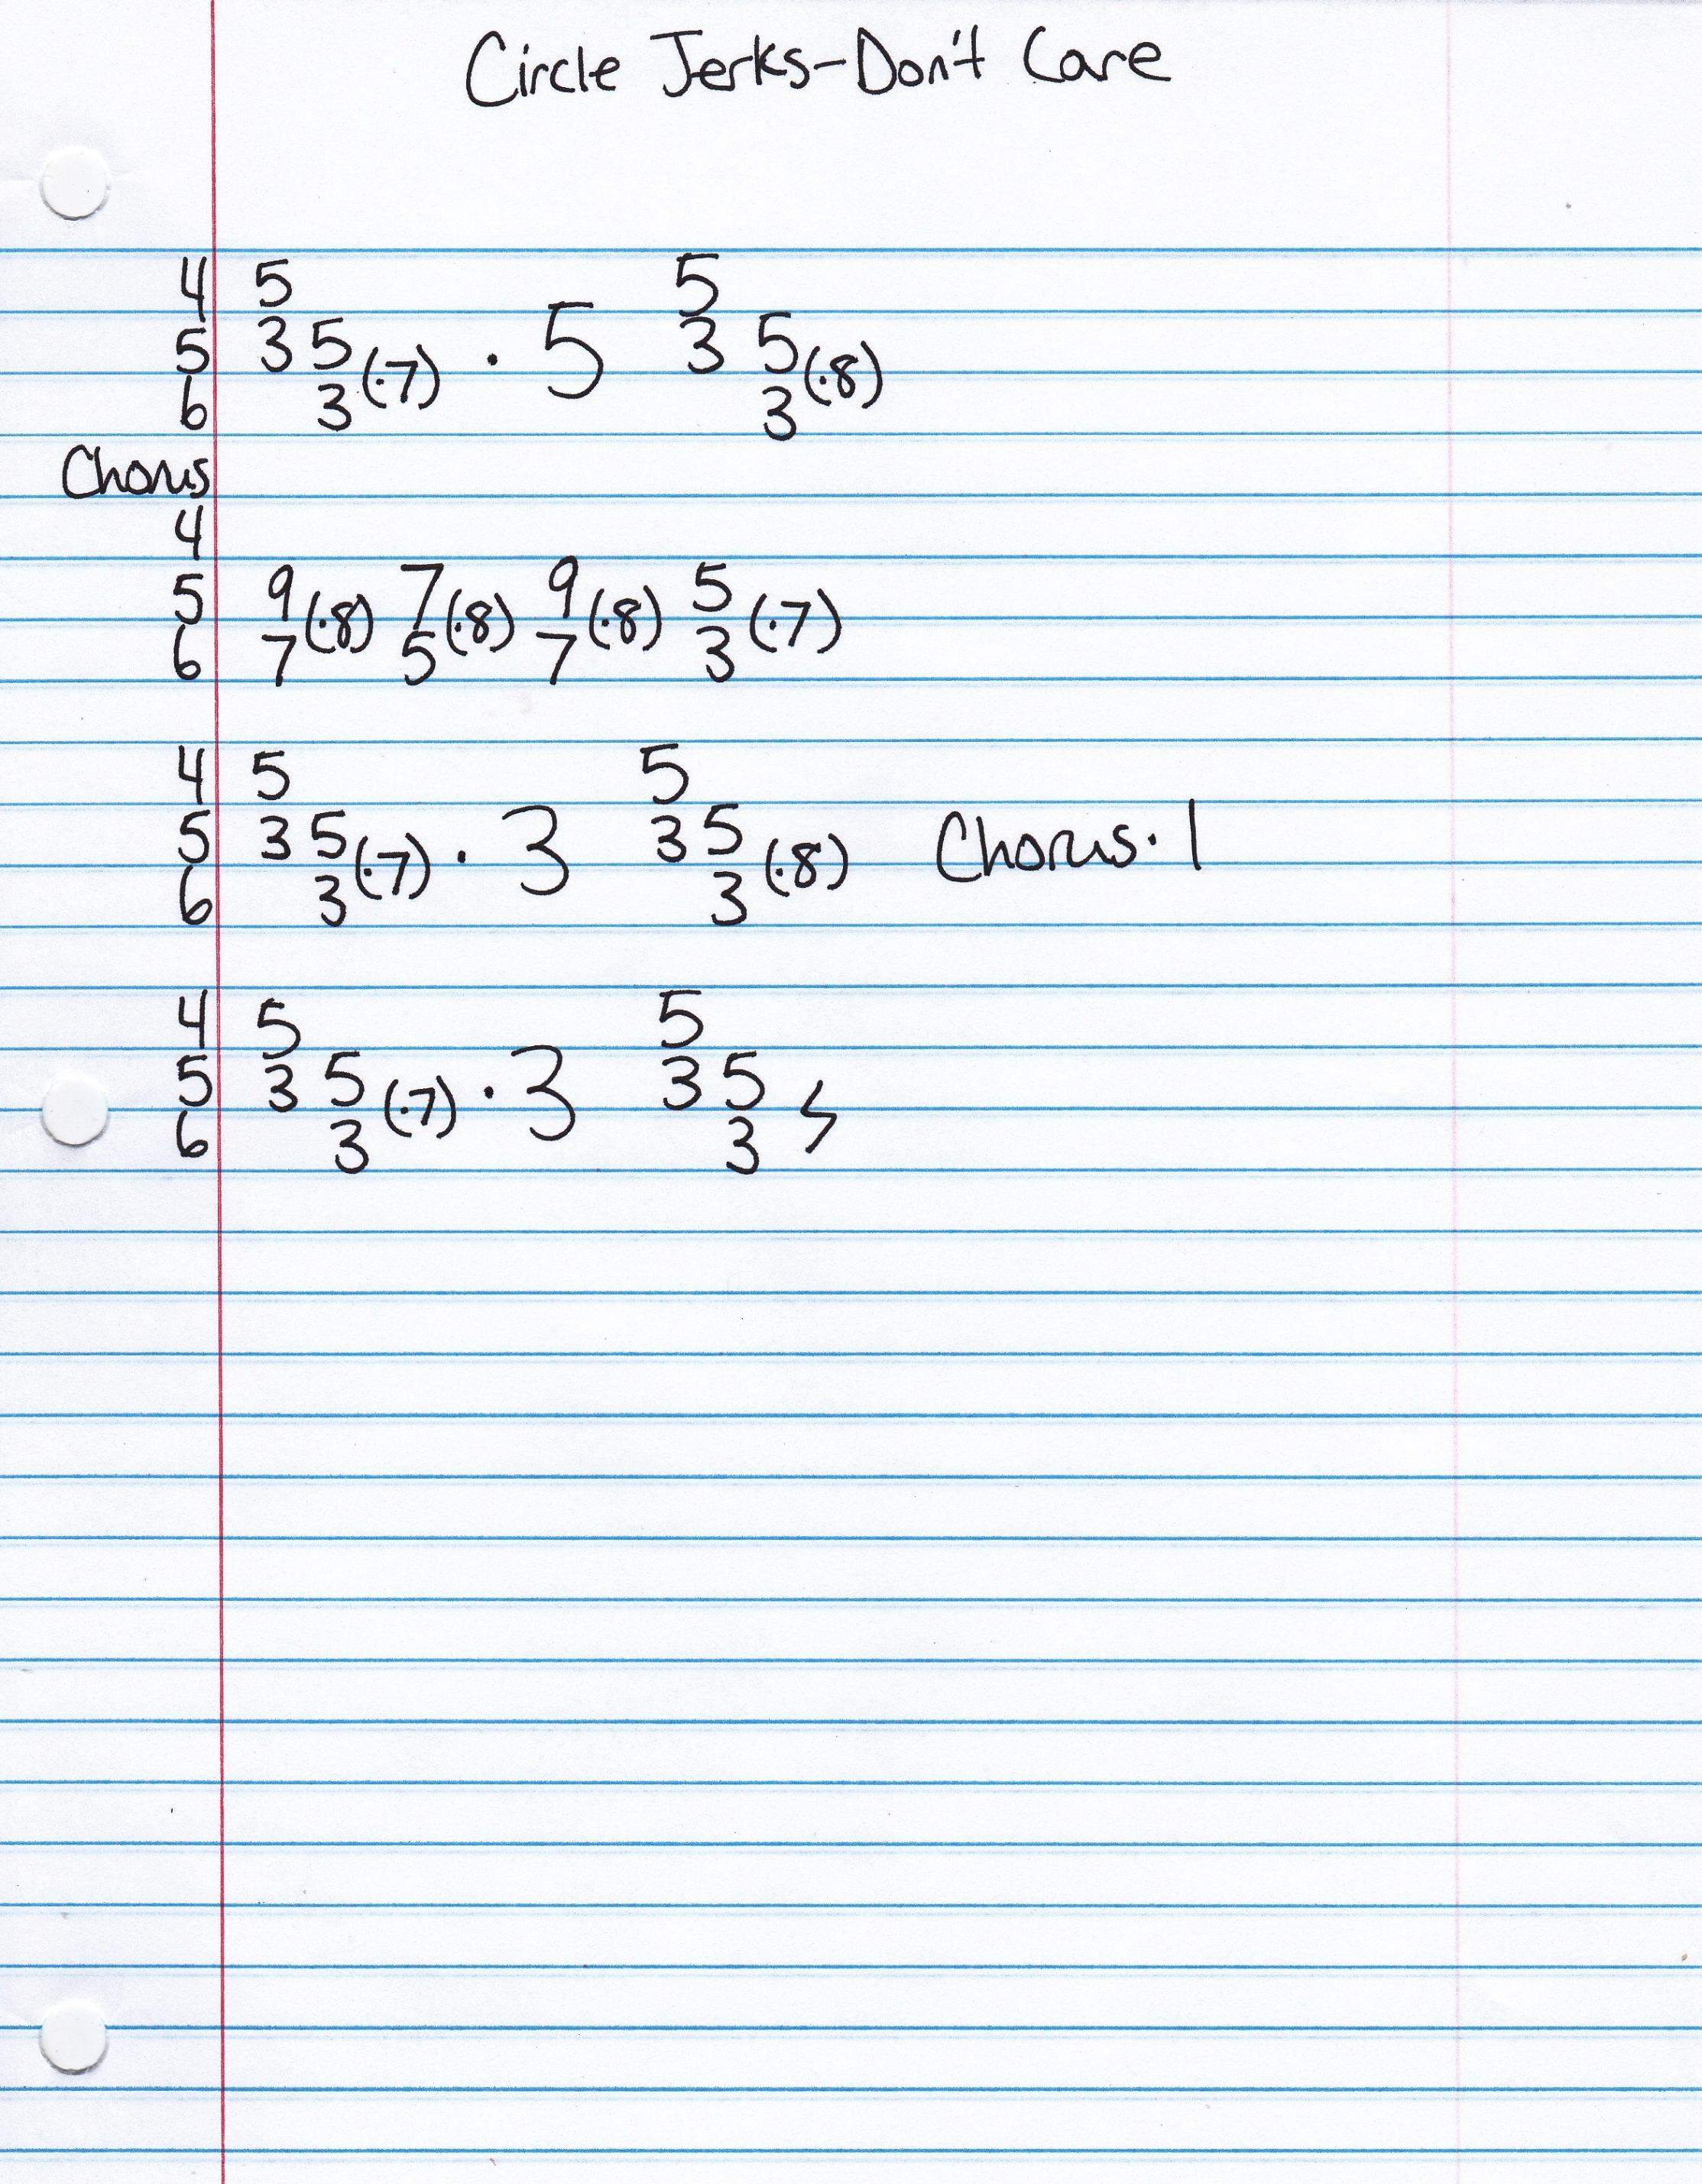 Circle Jerks-Don't Care
4 5 5
5 3 5 (·7) · 5 3 5 (·8)
6 3 3
Chorus
4
5 9 (·8) 7 (·8) 9 (·8) 5 (·7)
6 7 5 7 3
4 5 5
5 3 5 (·7) · 3 3 5 (·8) Chorus·1
6 3 3
4 5 5
5 3 5 (·7) · 3 3 5
6 3 3